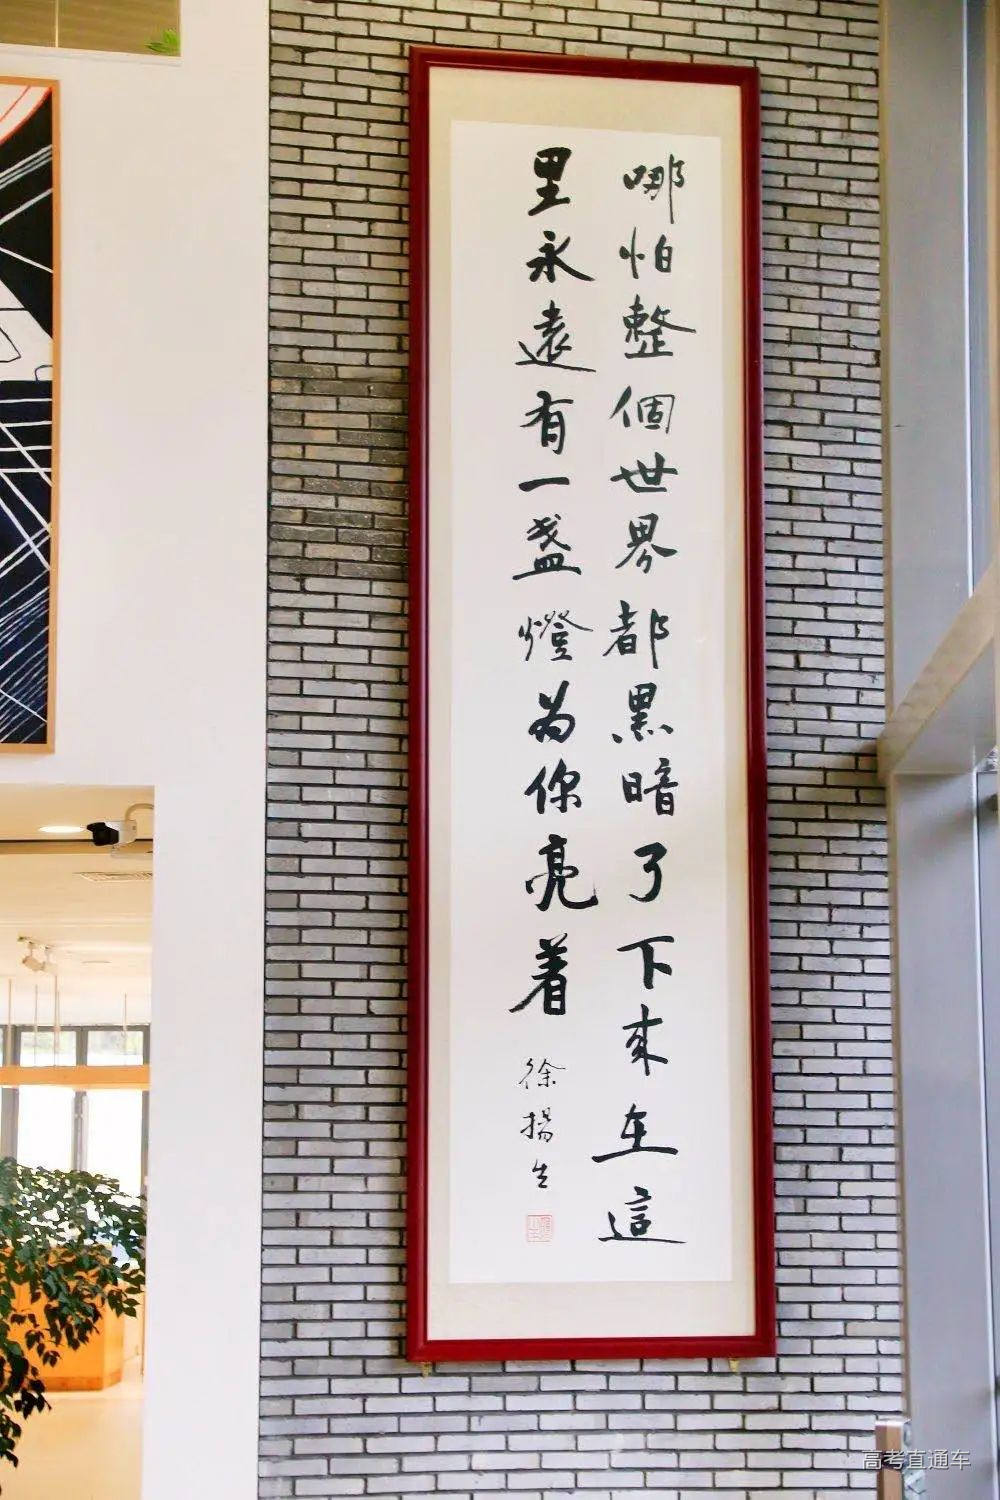 哪怕整個世界都黑暗了下來在這
里永遠有一盞燈為你亮着
徐揚生
高考直通车